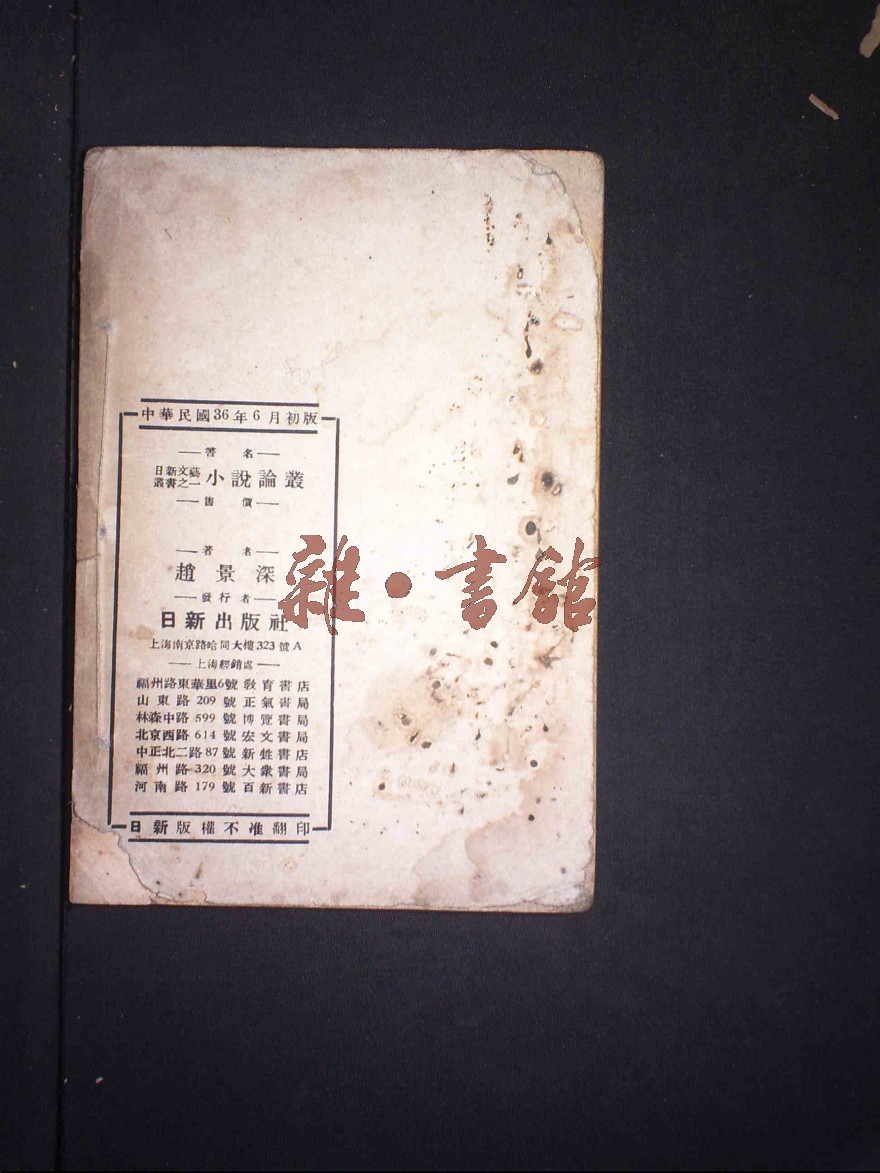 中華民國36年6月初版
著名
日新文藝叢書之一 小說論叢
售價
著者
趙景深
發行者
日新出版社
上海南京路哈同大樓323號A
上海經銷處
福州路東華里6號教育書店
山東路209號正氣書局
林森中路599號博覽書局
北京西路614號宏文書局
中正北二路87號新甡書店
福州路320號大衆書局
河南路179號百新書店
日新版權不准翻印
雜·書館